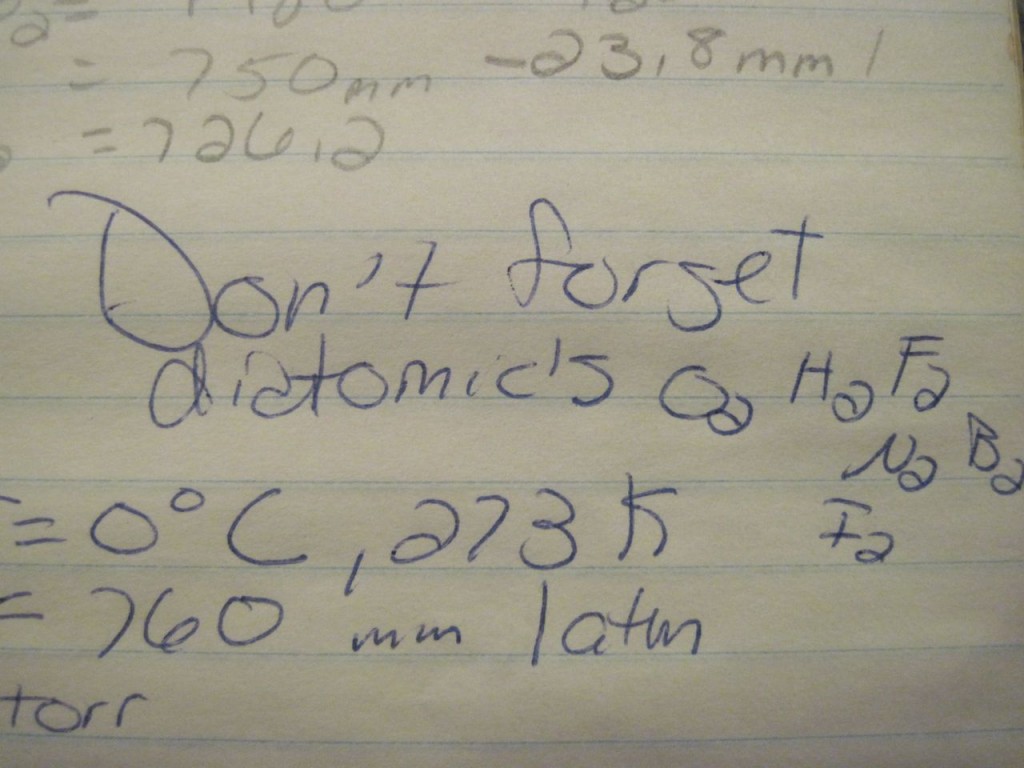 = 750mm -23.8mm
= 726.2
Don't forget
diatomic's O2 H2 F2
N2 B2
= 0°C, 273 K I2
= 760 mm 1atm
torr